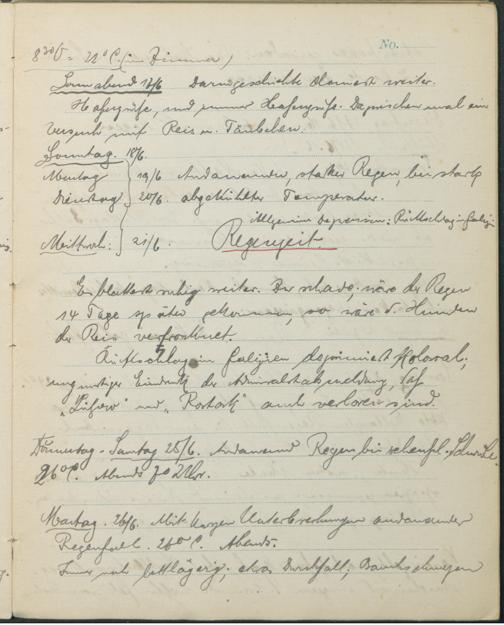 No.
8 30 V = 21° C (im Zimmer)
Sonnabend 17/6 Darmgeschichte dauert weiter.
Hafergrütze, und immer Hafergrütze. Dazwischen mal ein
Versuch mit Reis u. Täubchen.
Sonntag. 18/6.
Montag 19/6 Andauernder, starker Regen, bei stark
Dienstag 20/6. abgekühlter Temperatur.
Allgemeine Depression: Rückschlag in Galizien
Mittwoch. 21/6. Regenzeit.
Es blattert ruhig weiter. Der schade, wäre der Regen
14 Tage später gekommen, so wäre d. Hunden
der Reis vertrocknet.
Rückschlag in Galizien deprimiert kolossal;
ungünstiger Eindruck der Admiralstabsmeldung, daß
"Lützow" und "Rostock" auch verloren sind.
Donnerstag - Sonntag 25/6. Andauernd Regen, bei scheußl. Schwüle.
26° C. Abends 70 Uhr.
Montag. 26/6. Mit kurzen Unterbrechungen andauernder
Regenfall. 26° C. Abends.
Immer noch bettlägerig, etwas Durchfall, Bauchschmerzen